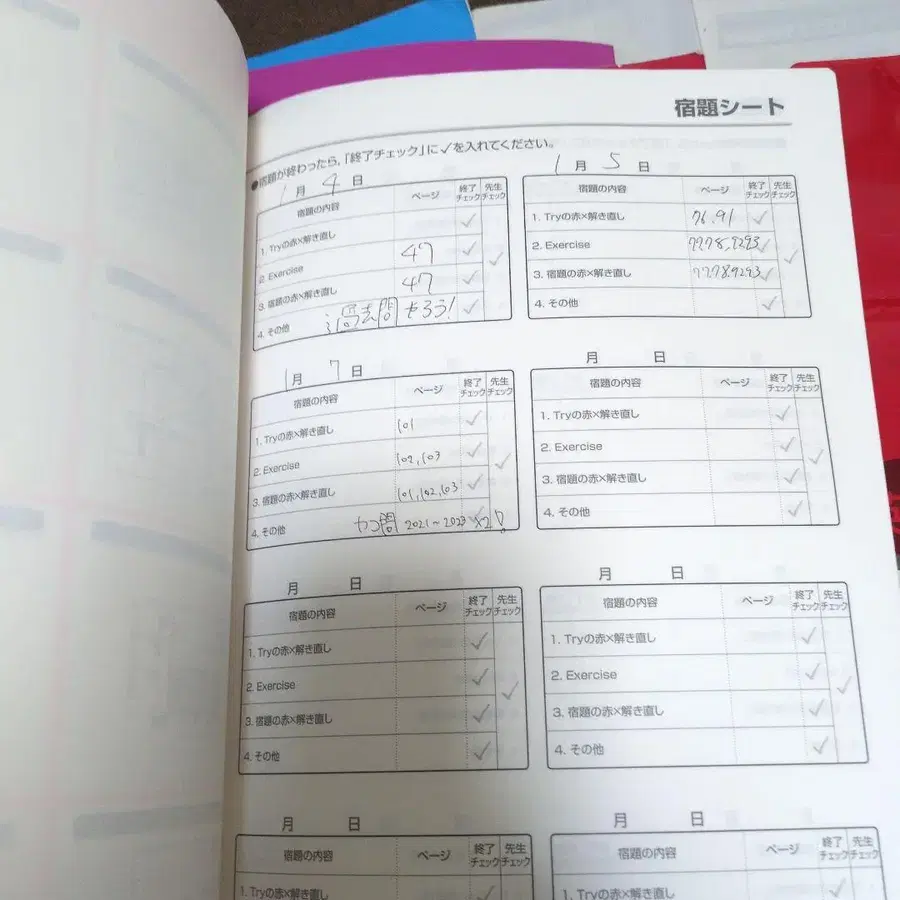 宿題シート
●宿題が終わったら,「終了チェック」に✓を入れてください。
1月 4日
宿題の内容 ページ 終了チェック 先生チェック
1. Tryの赤×解き直し
2. Exercise 47
3. 宿題の赤×解き直し 47
4. その他 過去問やろう!
1月 5日
宿題の内容 ページ 終了チェック 先生チェック
1. Tryの赤×解き直し 76.91
2. Exercise
3. 宿題の赤×解き直し
4. その他
1月 7日
宿題の内容 ページ 終了チェック 先生チェック
1. Tryの赤×解き直し 101
2. Exercise 102,103
3. 宿題の赤×解き直し 101,102,103
4. その他 カコ問 2021~2023 ×2!
月 日
宿題の内容 ページ 終了チェック 先生チェック
1. Tryの赤×解き直し
2. Exercise
3. 宿題の赤×解き直し
4. その他
月 日
宿題の内容 ページ 終了チェック 先生チェック
1. Tryの赤×解き直し
2. Exercise
3. 宿題の赤×解き直し
4. その他
月 日
宿題の内容 ページ 終了チェック 先生チェック
1. Tryの赤×解き直し
2. Exercise
3. 宿題の赤×解き直し
4. その他
月 日
宿題の内容 ページ 終了チェック 先生チェック
1. Tryの赤×解き直し
月 日
宿題の内容 ページ 終了チェック 先生チェック
1. Tryの赤×解き直し